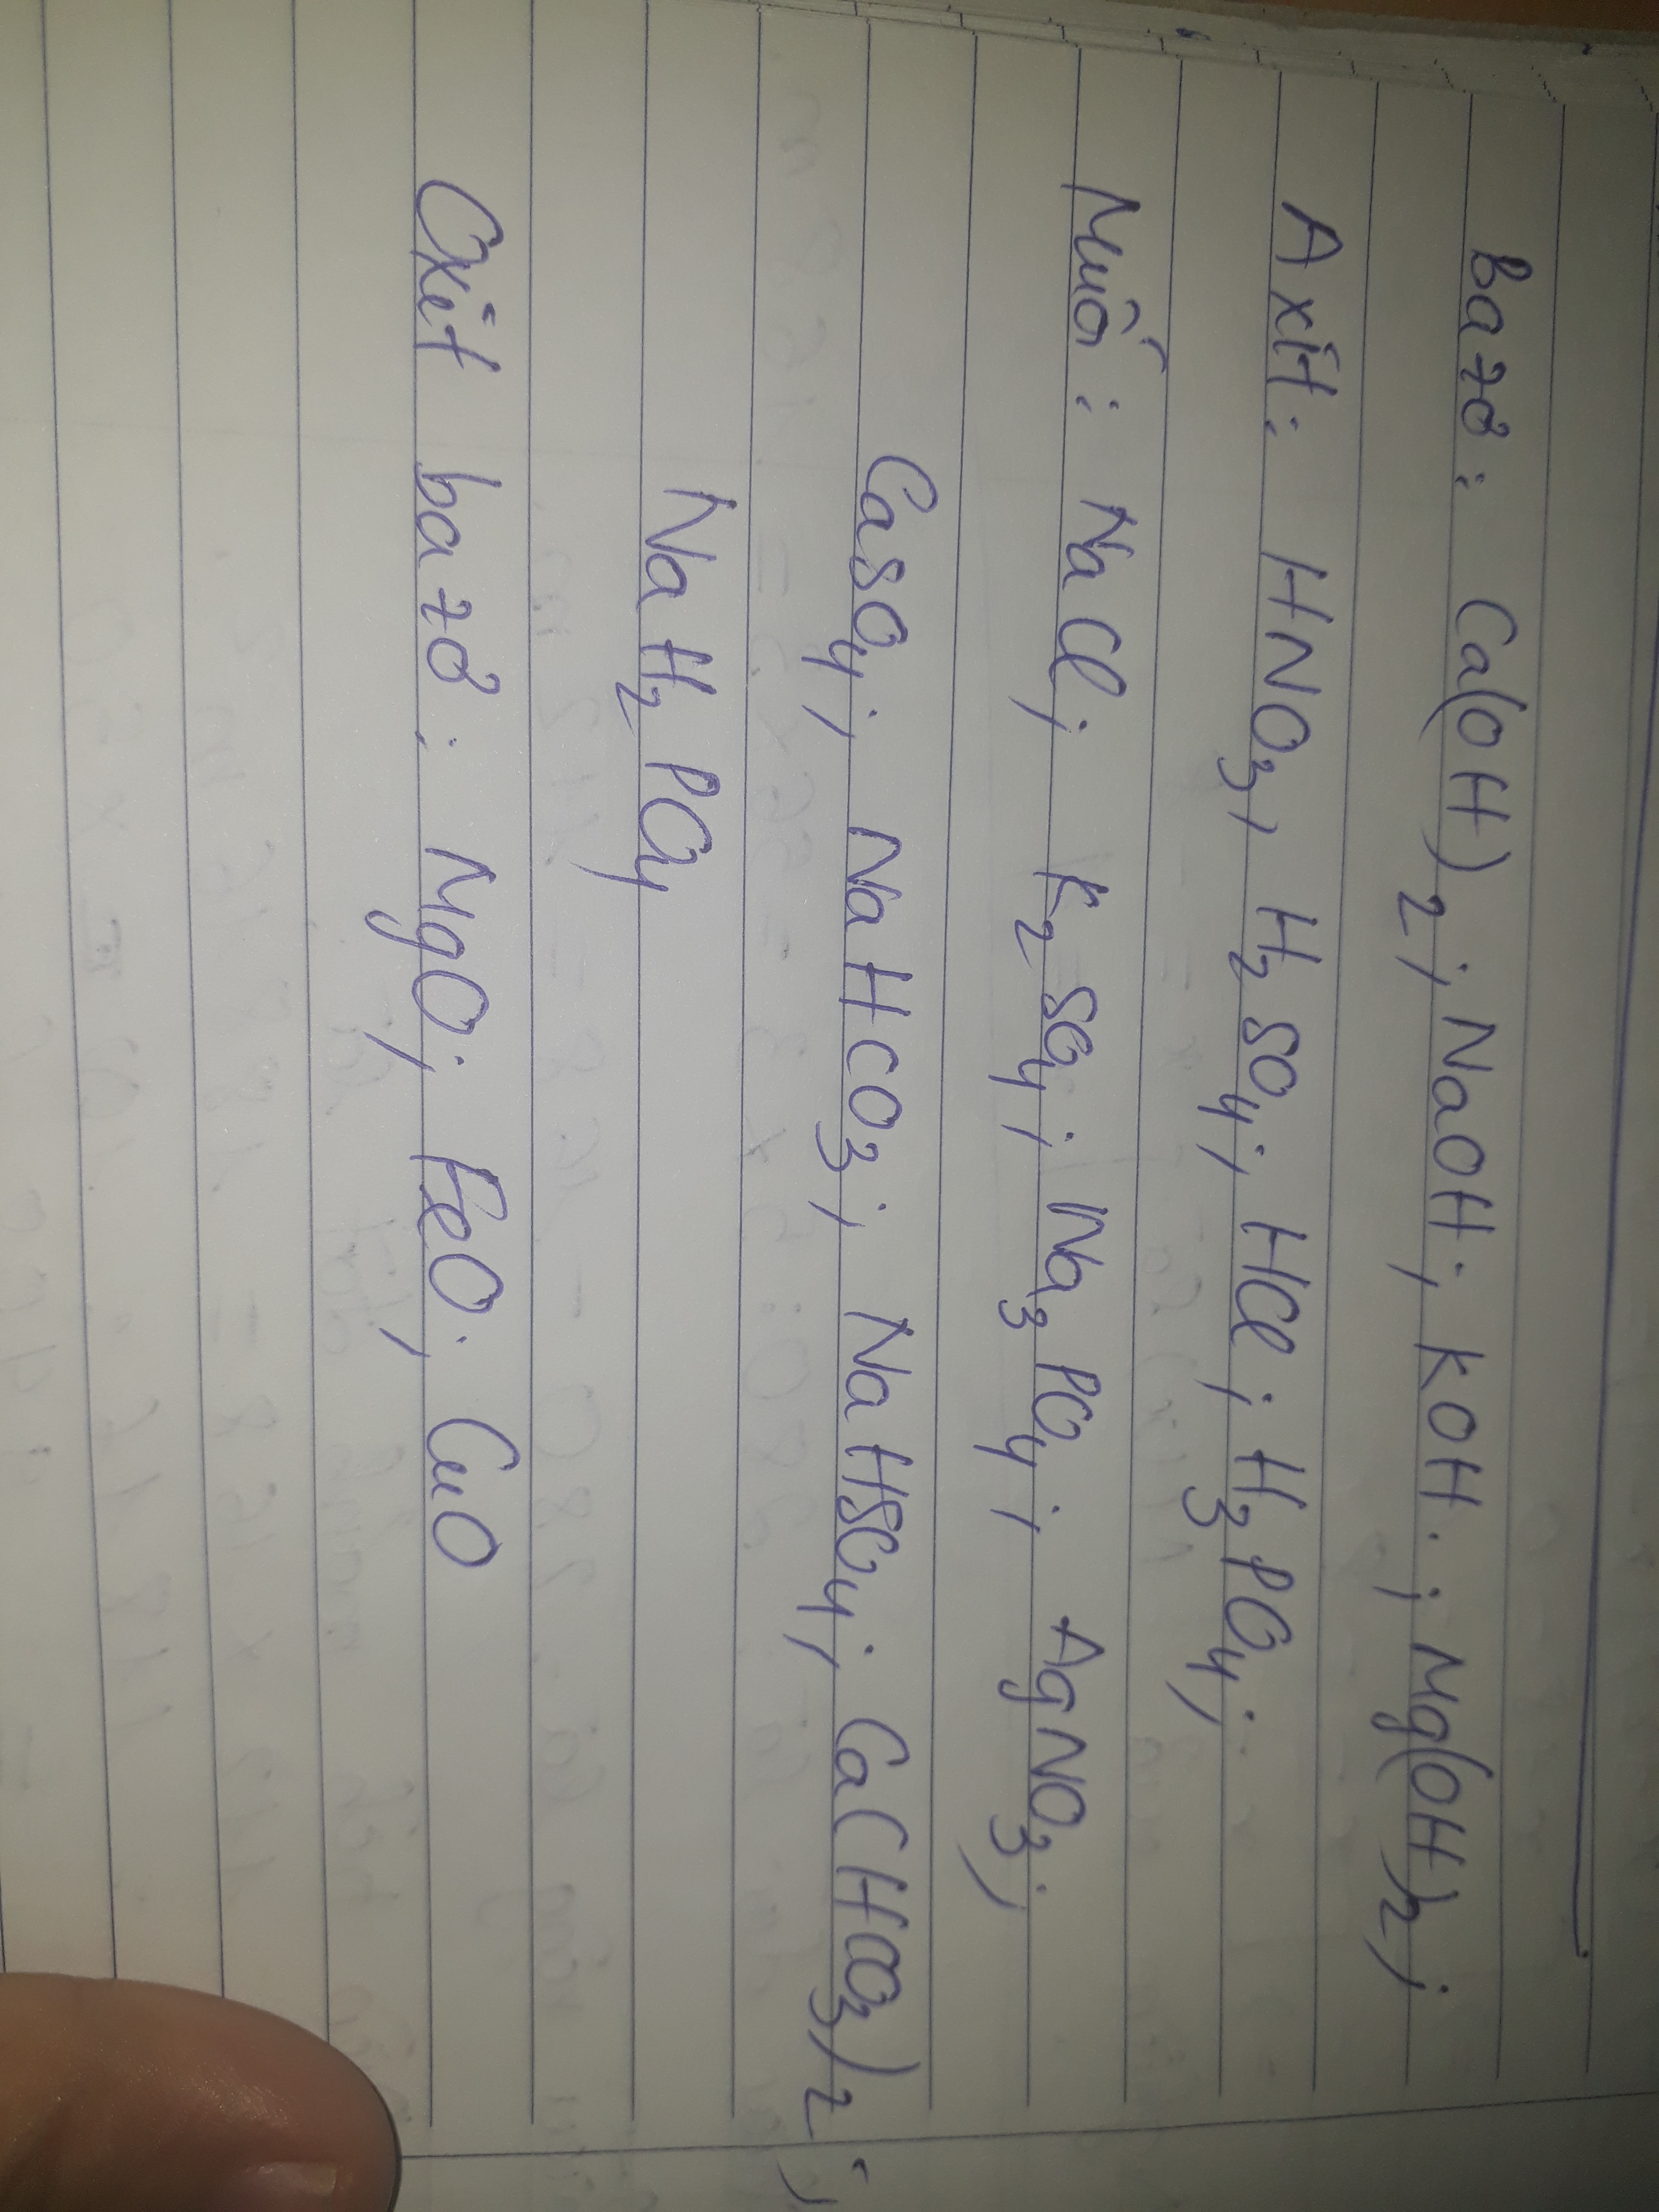 Bazơ: Ca(OH)2; NaOH; KOH.; Mg(OH)2;
Axit: HNO3, H2SO4; HCl; H3PO4;
Muối: NaCl; K2SO4; Na3PO4; AgNO3;
CaSO4; NaHCO3; NaHSO4; Ca(HCO3)2;
NaH2PO4
Oxit bazơ: MgO; FeO; CuO